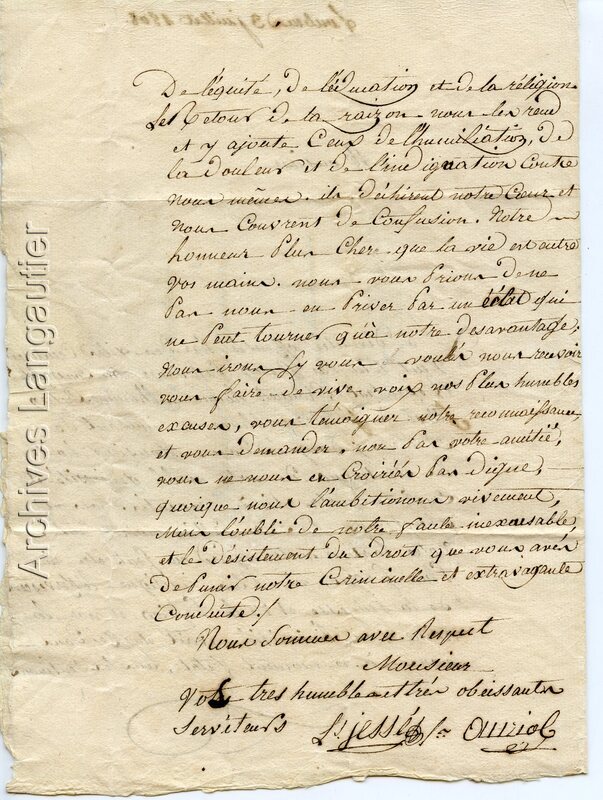 De l'équité, de l'éducation et de la réligion
Le Retour de la raizon nous les rend
et y ajoute Ceux de l'humiliation, de
la douleur et de l'indignation Contre
nous mêmes. ils déchirent notre Cœur et
nous Couvrent de Confusion. Notre
honneur Plus Cher que la vie est entre
vos mains. nous vous Prions de ne
Pas nous en Priver Par un éclat qui
ne Peut tourner qu'à notre desavantage.
Nous irons sy vous voulés nous recevoir
vous faire de vive voix nos Plus humbles
excuses, vous témoigner notre reconnaissance
et vous demander, non Pas votre amitié,
vous ne nous en Croiriés Pas digne,
quoique nous l'ambitionons vivement,
Mais l'oubli de notre faute inexcusable,
et le Désistement du droit que vous avés
de Punir notre Criminelle et extravagante
Conduite ./
Nous Sommes avec Respect
Monsieur
Vos tres humbles et trés obeissants
Serviteurs Ls. jessé Auriol
Archives Langautier